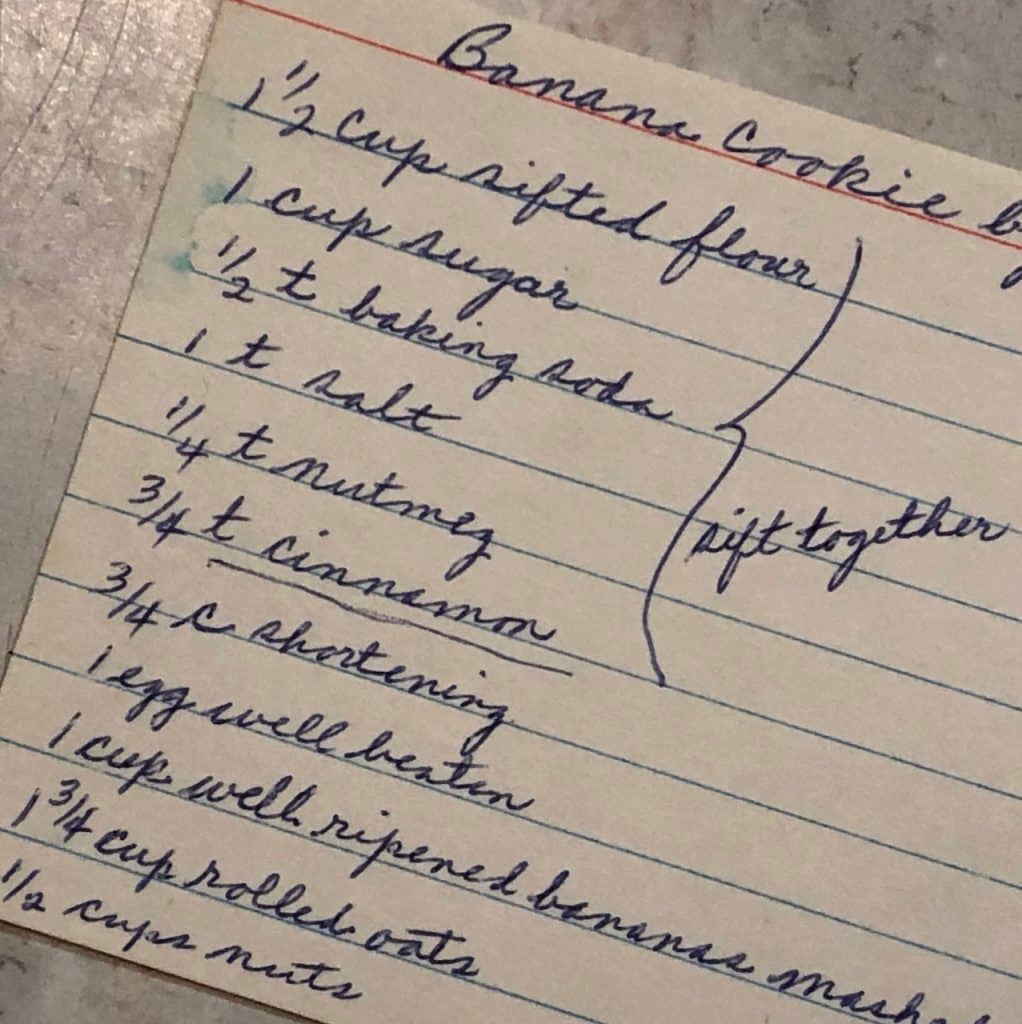 Banana Cookie b
1 1/2 cup sifted flour
1 cup sugar
1/2 t baking soda
1 t salt
1/4 t nutmeg
3/4 t cinnamon
sift together
3/4 c shortening
1 egg well beaten
1 cup well ripened bananas mashe
1 3/4 cup rolled oats
1/2 cups nuts